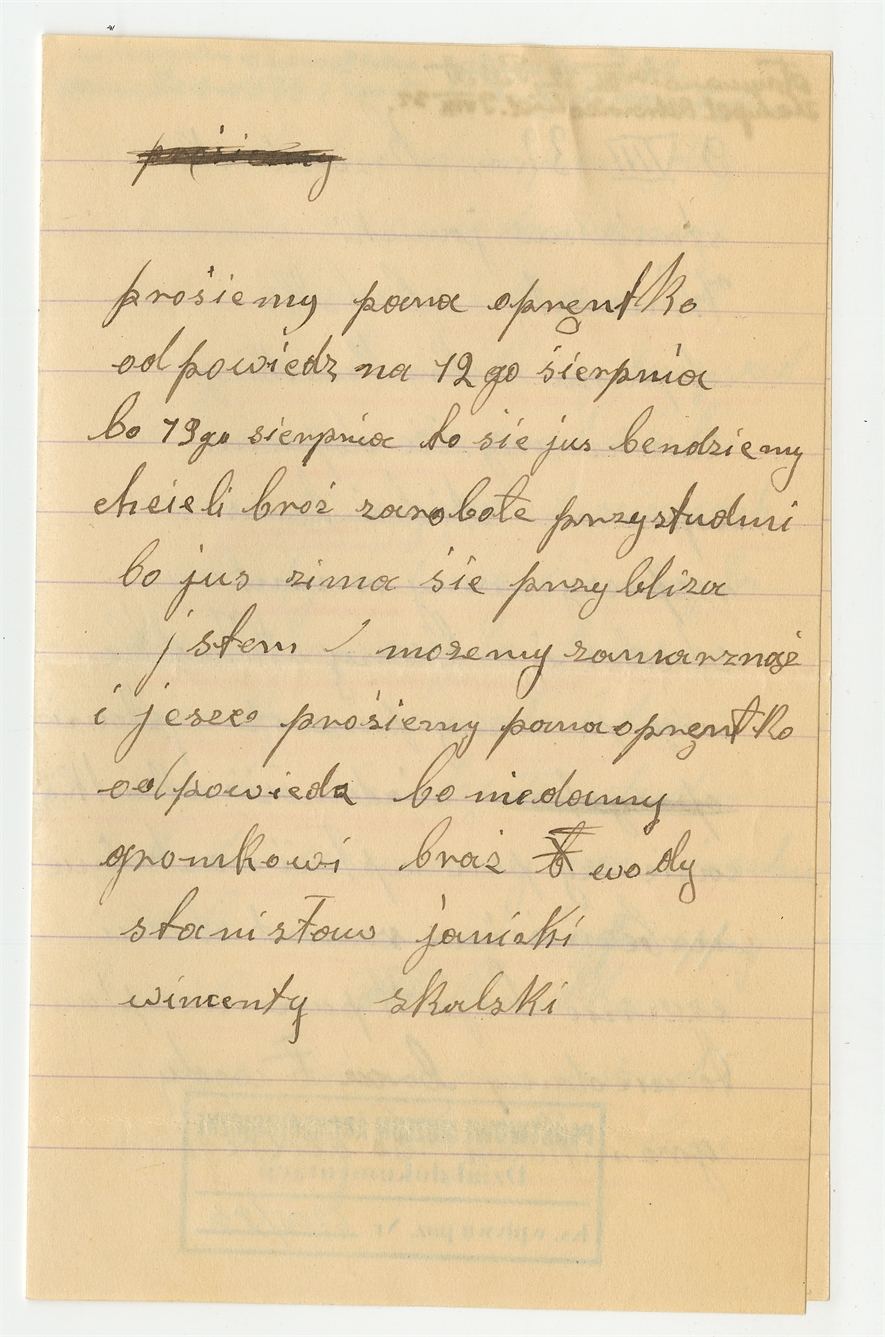 prosiemy
prośiemy pana oprentko
odpowiedz na 12go śierpnia
bo 19go sierpnia to sie jus bendziemy
chcieli broź zarobote przystudni
bo jus zima śie przybliza
jstem / mozemy zamarznąż
i jeseo prośiemy pana oprentko
odpowiedz bo niedamy
gromkowi braż wody
stanisław janicki
wincenty skalski